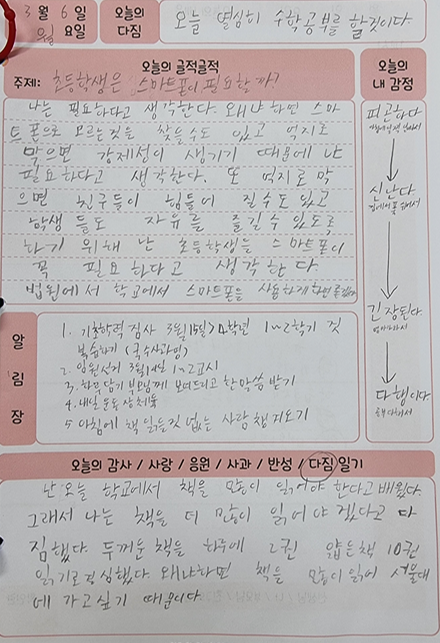 3월 6일
월요일
오늘의 다짐
오늘 열심히 수학공부를 할것이다.
오늘의 글적글적
주제: 초등학생은 스마트폰이 필요할까?
나는 필요하다고 생각한다. 왜냐하면 스마
트폰으로 모르는것을 찾을수도 있고 억지로
막으면 강제성이 생기기 때문에 난
필요하다고 생각한다. 또 억지로 막
으면 친구들이 힘들어 질수도있고
학생들도 자유를 즐길수있도록
하기 위해 난 초등학생들 스마트폰이
꼭 필요하다고 생각한다
법원에서 학교에서 스마트폰을 사용하게하면
오늘의
내 감정
피곤하다
신난다
긴장된다
다행이다
알림장
1. 기초학력 검사 3월15일>4학년 1~2학기 것
복습하기 (국수사과영)
2. 임원선거 3월14일 1~2교시
3. 하루 담기 부모님께 보여드리고 한말씀 받기
4. 내일 운동장체육
5. 아침에 책 읽을것 없는 사람 책 가져오기
오늘의 감사 / 사랑 / 응원 / 사과 / 반성 / 다짐 일기
난 오늘 학교에서 책을 많이 읽어야 한다고 배웠다.
그래서 나는 책을 더 많이 읽어야 겠다고 다
짐했다. 두꺼운 책을 하루에 2권 얇은책 10권
읽기로 결심했다. 왜냐하면 책을 많이 읽어 서울대
에 가고싶기 때문이다.